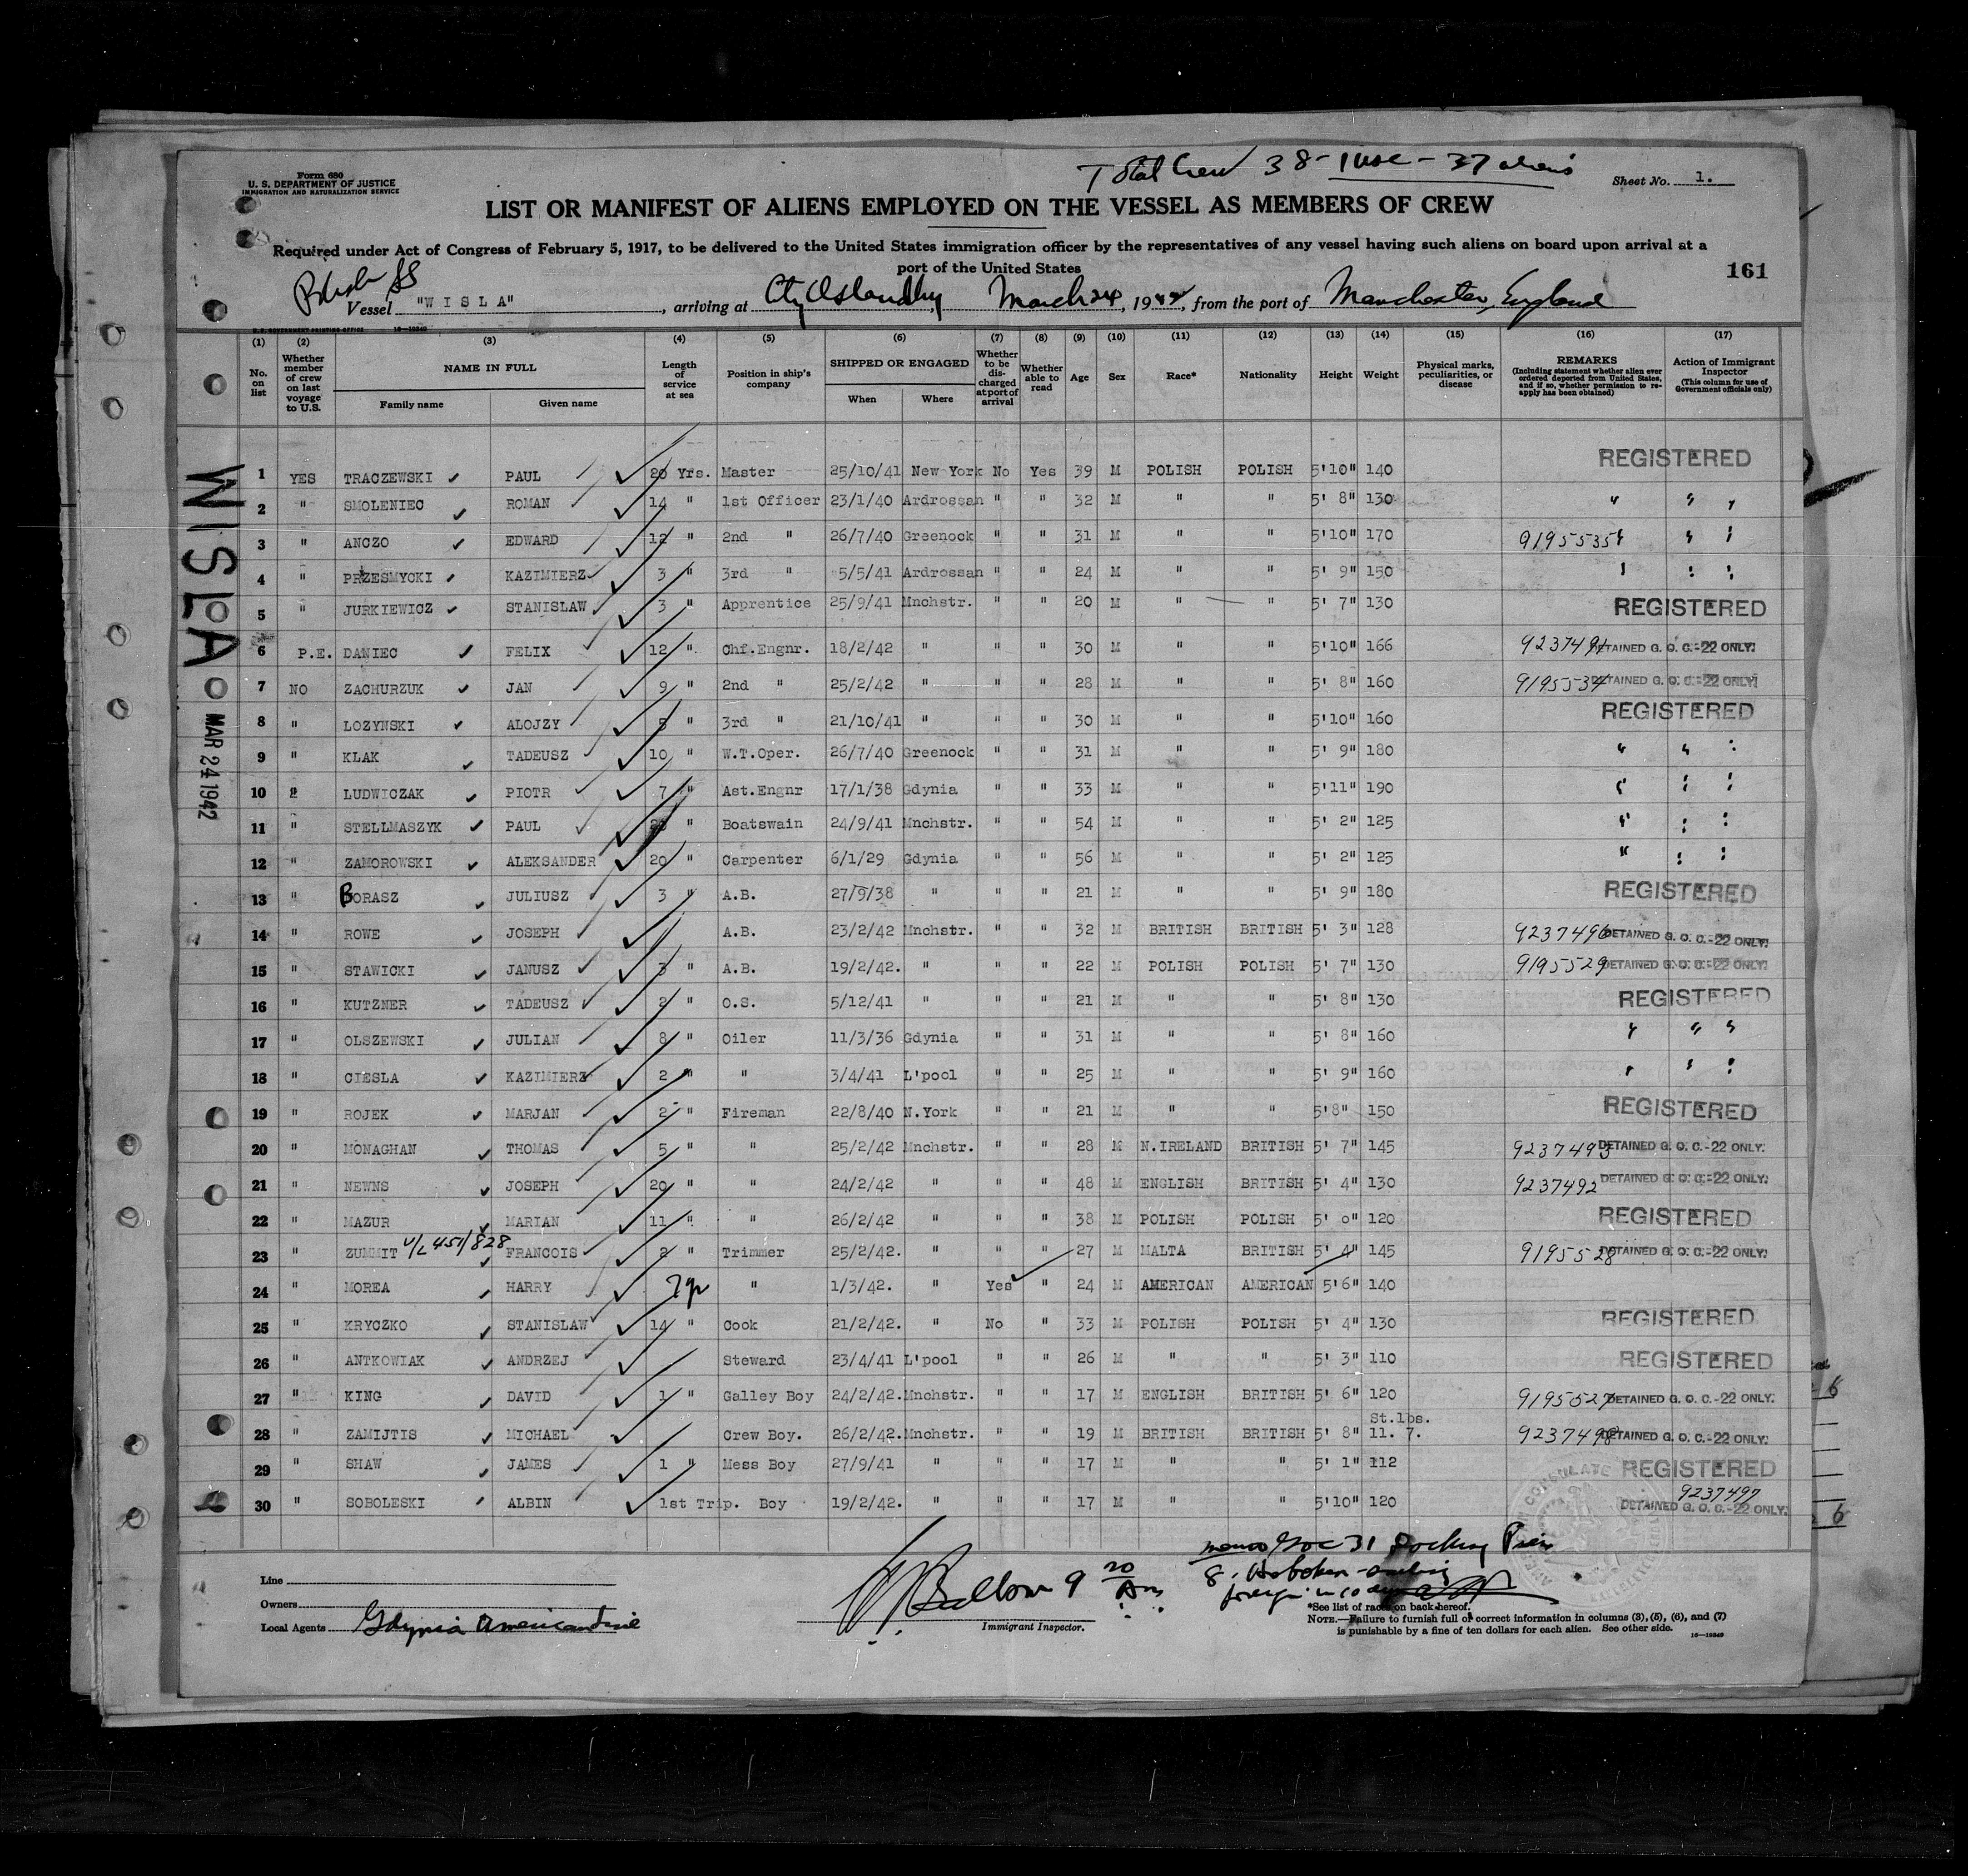 Total Crew 38 - 1 USC - 37 aliens
Form 680
U. S. DEPARTMENT OF JUSTICE
IMMIGRATION AND NATURALIZATION SERVICE
Sheet No. 1.
LIST OR MANIFEST OF ALIENS EMPLOYED ON THE VESSEL AS MEMBERS OF CREW
Required under Act of Congress of February 5, 1917, to be delivered to the United States immigration officer by the representatives of any vessel having such aliens on board upon arrival at a
port of the United States
161
Polish SS
Vessel "WISLA", arriving at March 24, 1942, from the port of Manchester, England
(1) (2) (3) (4) (5) (6) (7) (8) (9) (10) (11) (12) (13) (14) (15) (16) (17)
No. on list
Whether member of crew on last voyage to U.S.
NAME IN FULL
Family name Given name
Length of service at sea
Position in ship's company
SHIPPED OR ENGAGED
When Where
Whether to be discharged at port of arrival
Whether able to read
Age Sex Race* Nationality Height Weight
Physical marks, peculiarities, or disease
REMARKS
(Including statement whether alien ever ordered deported from United States, and if so, whether permission to reapply has been obtained)
Action of Immigrant Inspector
(This column for use of Government officials only)
WISLA
MAR 24 1942
1 YES TRACZEWSKI PAUL 20 Yrs. Master 25/10/41 New York No Yes 39 M POLISH POLISH 5'10" 140 REGISTERED
2 " SMOLENIEC ROMAN 14 " 1st Officer 23/1/40 Ardrossan " " 32 M " " 5' 8" 130 " " "
3 " ANCZO EDWARD 12 " 2nd " 26/7/40 Greenock " " 31 M " " 5'10" 170 9195535 " " "
4 " PRZESMYCKI KAZIMIERZ 3 " 3rd " 5/5/41 Ardrossan " " 24 M " " 5' 9" 150 " " "
5 " JURKIEWICZ STANISLAW 3 " Apprentice 25/9/41 Mnchstr. " " 20 M " " 5' 7" 130 REGISTERED
6 P.E. DANIEC FELIX 12 " Chf.Engnr. 18/2/42 " " " 30 M " " 5'10" 166 9237491 DETAINED G. O. C.-22 ONLY.
7 NO ZACHURZUK JAN 9 " 2nd " 25/2/42 " " " 28 M " " 5' 8" 160 9195534 DETAINED G. O. C.-22 ONLY.
8 " LOZYNSKI ALOJZY 5 " 3rd " 21/10/41 " " " 30 M " " 5'10" 160 REGISTERED
9 " KLAK TADEUSZ 10 " W.T.Oper. 26/7/40 Greenock " " 31 M " " 5' 9" 180 " " "
10 " LUDWICZAK PIOTR 7 " Ast.Engnr 17/1/38 Gdynia " " 33 M " " 5'11" 190 " " "
11 " STELLMASZYK PAUL " Boatswain 24/9/41 Mnchstr. " " 54 M " " 5' 2" 125 " " "
12 " ZAMOROWSKI ALEKSANDER 20 " Carpenter 6/1/29 Gdynia " " 56 M " " 5' 2" 125 " " "
13 " BORASZ JULIUSZ 3 " A.B. 27/9/38 " " " 21 M " " 5' 9" 180 REGISTERED
14 " ROWE JOSEPH A.B. 23/2/42 Mnchstr. " " 32 M BRITISH BRITISH 5' 3" 128 9237496 DETAINED G. O. C.-22 ONLY.
15 " STAWICKI JANUSZ 3 " A.B. 19/2/42. " " " 22 M POLISH POLISH 5' 7" 130 9195529 DETAINED G. O. C.-22 ONLY.
16 " KUTZNER TADEUSZ 2 " O.S. 5/12/41 " " " 21 M " " 5' 8" 130 REGISTERED
17 " OLSZEWSKI JULIAN 8 " Oiler 11/3/36 Gdynia " " 31 M " " 5' 8" 160 " " "
18 " CIESLA KAZIMIERZ 2 " " 3/4/41 L'pool " " 25 M " " 5' 9" 160 " " "
19 " ROJEK MARJAN 2 " Fireman 22/8/40 N.York " " 21 M " " 5'8" 150 REGISTERED
20 " MONAGHAN THOMAS 5 " " 25/2/42 Mnchstr. " " 28 M N.IRELAND BRITISH 5' 7" 145 9237493 DETAINED G. O. C.-22 ONLY.
21 " NEWNS JOSEPH 20 " " 24/2/42 " " " 48 M ENGLISH BRITISH 5' 4" 130 9237492 DETAINED G. O. C.-22 ONLY.
22 " MAZUR MARIAN 11 " " 26/2/42 " " " 38 M POLISH POLISH 5' 0" 120 REGISTERED
23 " ZUMMIT V/L 451/828 FRANCOIS 2 " Trimmer 25/2/42. " " " 27 M MALTA BRITISH 5' 4" 145 9195528 DETAINED G. O. C.-22 ONLY.
24 " MOREA HARRY " 1/3/42. " Yes " 24 M AMERICAN AMERICAN 5'6" 140
25 " KRYCZKO STANISLAW 14 " Cook 21/2/42. " No " 33 M POLISH POLISH 5' 4" 130 REGISTERED
26 " ANTKOWIAK ANDRZEJ Steward 23/4/41 L'pool " " 26 M " " 5' 3" 110 REGISTERED
27 " KING DAVID 1 " Galley Boy 24/2/42. Mnchstr. " " 17 M ENGLISH BRITISH 5' 6" 120 9195527 DETAINED G. O. C.-22 ONLY.
28 " ZAMIJTIS MICHAEL Crew Boy. 26/2/42. Mnchstr. " " 19 M BRITISH BRITISH 5' 8" St.lbs. 11. 7. 9237498 DETAINED G. O. C.-22 ONLY.
29 " SHAW JAMES 1 " Mess Boy 27/9/41 " " " 17 M " " 5' 1" 112 REGISTERED
30 " SOBOLESKI ALBIN 1st Trip. Boy 19/2/42. " " " 17 M " " 5'10" 120 9237497 DETAINED G. O. C.-22 ONLY.
Line
Owners
Local Agents Gdynia America Line
Immigrant Inspector.
*See list of races on back hereof.
NOTE.—Failure to furnish full or correct information in columns (3), (5), (6), and (7)
is punishable by a fine of ten dollars for each alien. See other side.